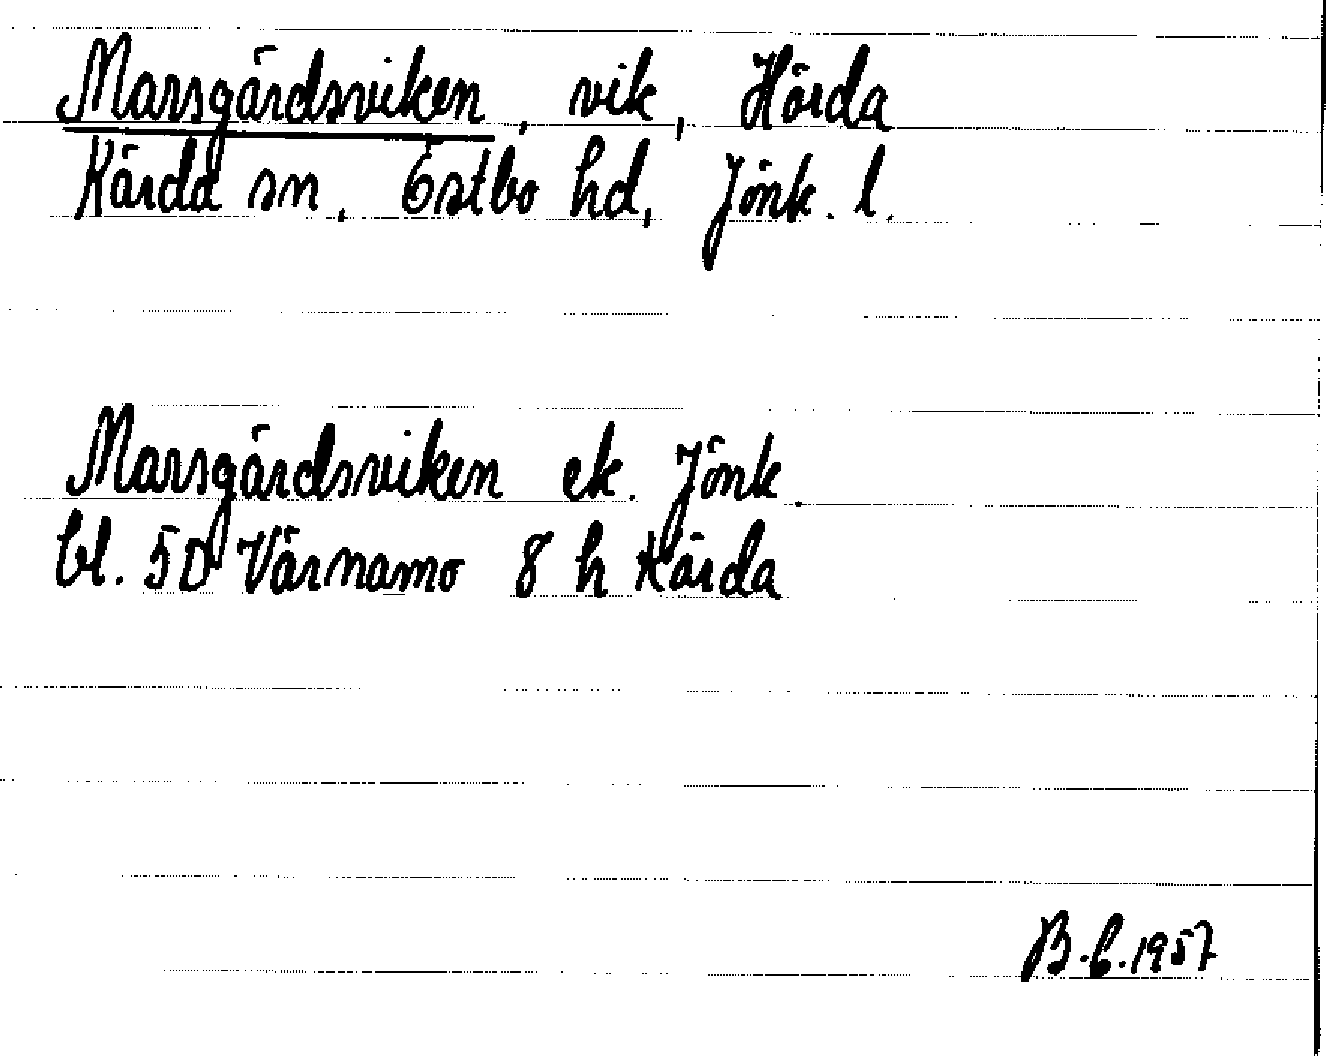 Marsgårdsviken, vik, Hörda
Kärda sn, Östbo hd, Jönk. l.
Marsgårdsviken ek. Jönk.
bl. 5D Värnamo 8 h Kärda
B.C.1957